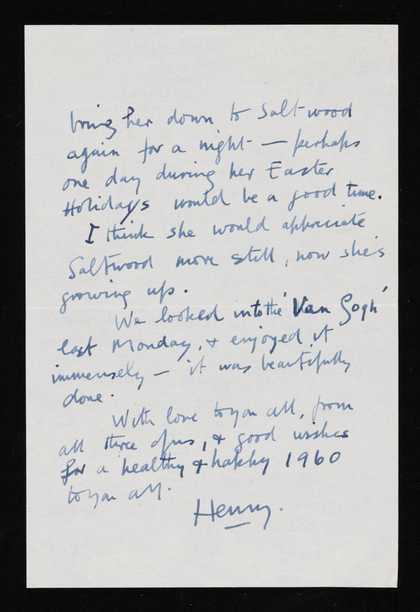 bring her down to Saltwood
again for a night — perhaps
one day during her Easter
Holidays would be a good time.
I think she would appreciate
Saltwood more still, now she's
growing up.
We looked into the 'Van Gogh'
last Monday, & enjoyed it
immensely — it was beautifully
done.
With love to you all, from
all three of us, & good wishes
for a healthy & happy 1960
to you all.
Henry.